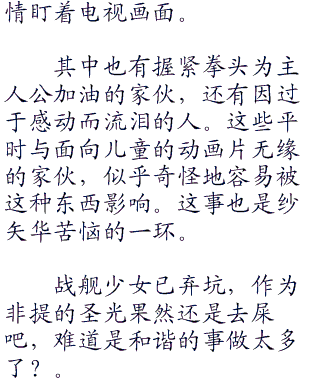 情盯着电视画面。
其中也有握紧拳头为主
人公加油的家伙，还有因过
于感动而流泪的人。这些平
时与面向儿童的动画片无缘
的家伙，似乎奇怪地容易被
这种东西影响。这事也是纱
矢华苦恼的一环。
战舰少女已弃坑，作为
非提的圣光果然还是去屎
吧，难道是和谐的事做太多
了？。